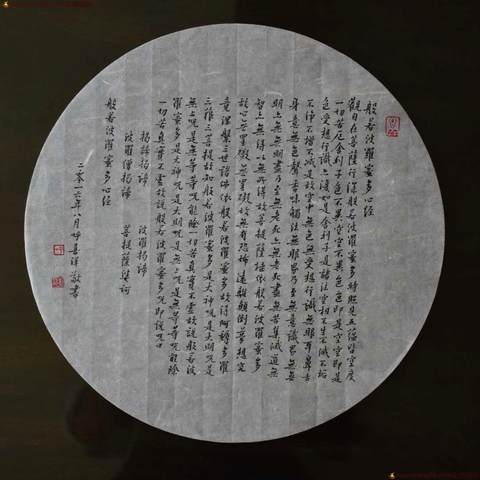 般若波羅蜜多心經
觀自在菩薩行深般若波羅蜜多時照見五蘊皆空度
一切苦厄舍利子色不異空空不異色色即是空空即是
色受想行識亦復如是舍利子是諸法空相不生不滅不垢
不淨不增不減是故空中無色無受想行識無眼耳鼻舌
身意無色聲香味觸法無眼界乃至無意識界無無
明亦無無明盡乃至無老死亦無老死盡無苦集滅道無
智亦無得以無所得故菩提薩埵依般若波羅蜜多
故心無罣礙無罣礙故無有恐怖遠離顛倒夢想究
竟涅槃三世諸佛依般若波羅蜜多故得阿耨多羅
三藐三菩提故知般若波羅蜜多是大神咒是大明咒是
無上咒是無等等咒能除一切苦真實不虛故說般若波
羅蜜多是大神咒是大明咒是無上咒是無等等咒能除
一切苦真實不虛故說般若波羅蜜多咒即說咒曰
揭諦揭諦 波羅揭諦
波羅僧揭諦 菩提薩婆訶
般若波羅蜜多心經
二零一六年八月 敬書